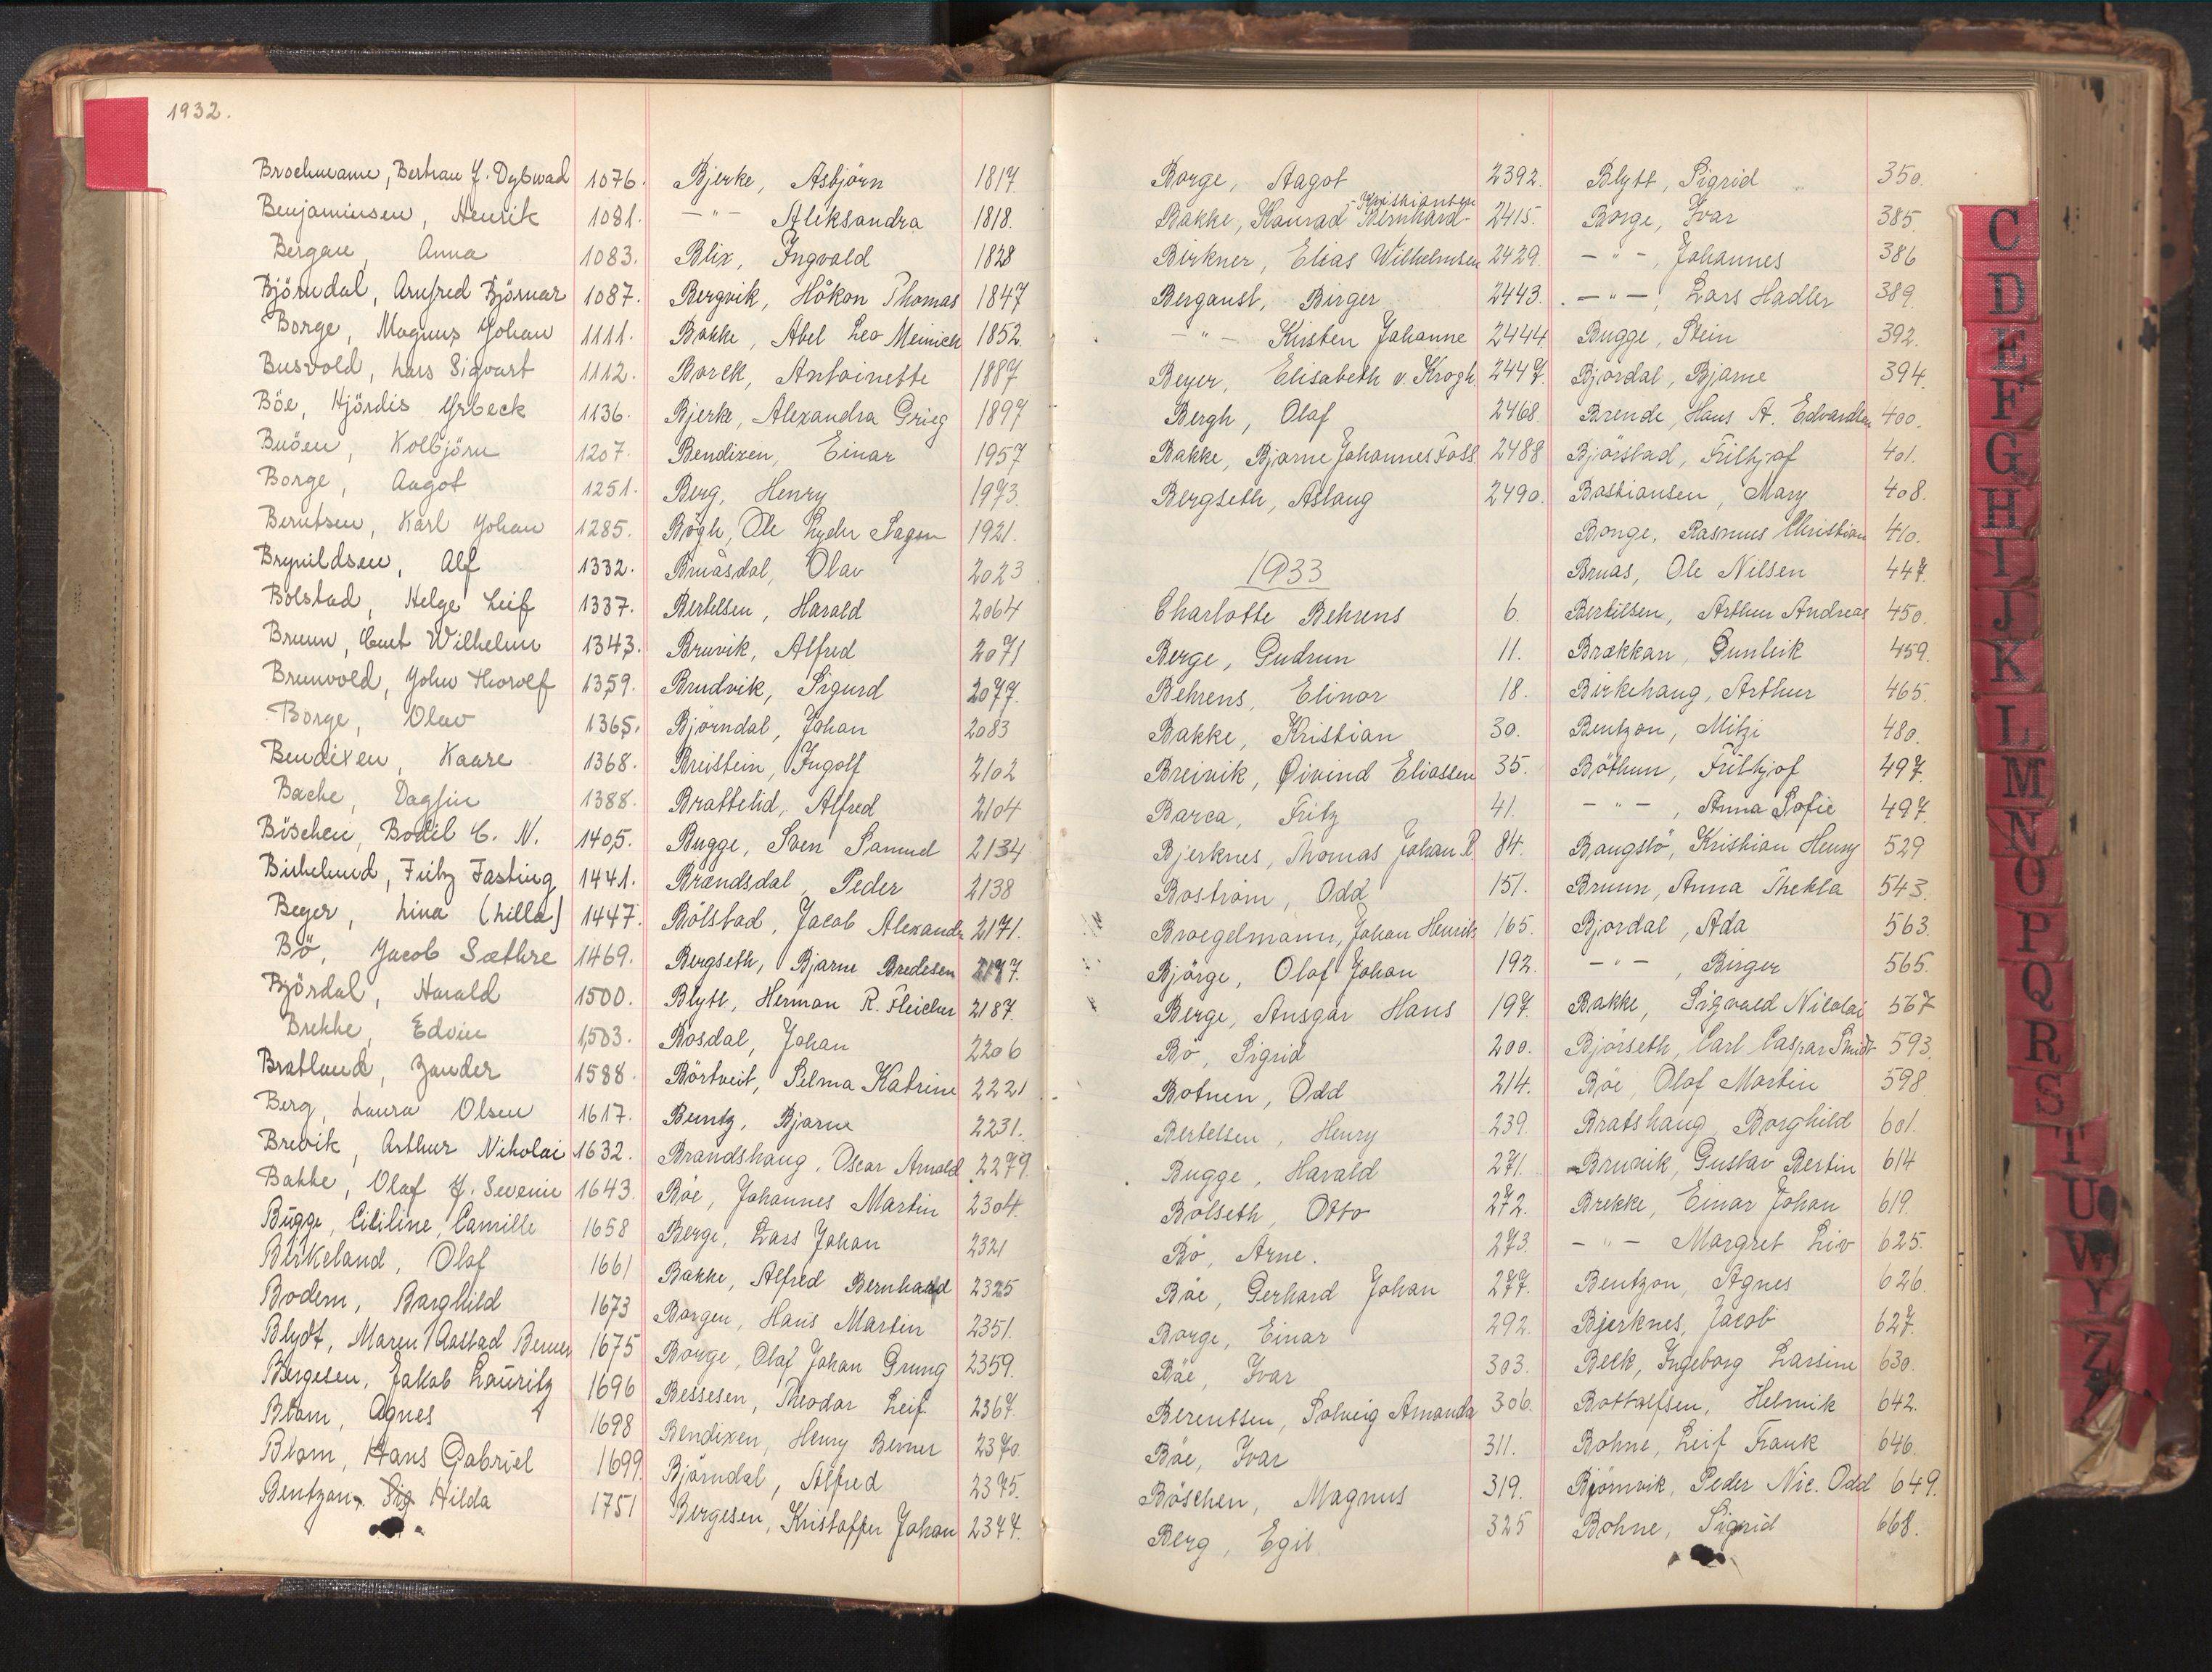 1932.
Brochmann, Bertrau J. Dybwad 1076.
Benjaminsen, Henrik 1081.
Bergan, Anna 1083.
Björndal, Arnfred Björnar 1087.
Borge, Magnus Johan 1111.
Busvold, Lars Sigvart 1112.
Böe, Hjördis Yrbeck 1136.
Buöen, Kolbjörn 1207.
Borge, Aagot 1251.
Berntsen, Karl Johan 1285.
Brynildsen, Alf 1332.
Bolstad, Helge Leif 1337.
Bruun, Curt Wilhelm 1343.
Brunvold, John Thorolf 1359.
Borge, Olav 1365.
Bendixen, Kaare 1368.
Bache, Dagfin 1388.
Böschen, Bodil C. N. 1405.
Birkelund, Fritz Fasting 1441.
Beyer, Lina (Lilla) 1447.
Bö, Jacob Sæthre 1469.
Björdal, Harald 1500.
Brekke, Edvin 1503.
Bratlund, Zander 1588.
Berg, Laura Olsen 1617.
Brevik, Arthur Nikolai 1632.
Bakke, Olaf J. Severin 1643.
Bugge, Ciciline Camille 1658
Birkeland, Olaf 1661
Bodem, Borghild 1673
Blydt, Maren Aastad Berner 1675
Bergesen, Jakob Lauritz 1696
Blom, Agnes 1698
Blom, Hans Gabriel 1699
Bentzon, Hilda 1751
Bjerke, Asbjörn 1817
— " — Aleksandra 1818.
Blix, Ingvald 1828
Bergvik, Håkon Thomas 1847
Bakke, Abel Leo Meinich 1852.
Borck, Antoinette 1887
Bjerke, Alexandra Grieg 1897
Bendixen, Einar 1957
Berg, Henry 1973.
Bögh, Ole Lyder Sagen 1921.
Bruåsdal, Olav 2023
Bertelsen, Harald 2064
Bruvik, Alfred 2071
Brudvik, Sigurd 2077.
Björndal, Johan 2083
Breistein, Ingolf 2102
Brattelid, Alfred 2104
Bugge, Sven Samuel 2134
Brændsdal, Peder 2138
Bölstad, Jacob Alexander 2171.
Bergseth, Bjarne Bredesen
Blytt, Herman R. Fleicher 2187.
Bosdal, Johan 2206
Börtveit, Selma Katrine 2221
Buntz, Bjarne 2231.
Brandshaug, Oscar Arnold 2279.
Böe, Johannes Martin 2304.
Berge, Lars Johan 2321
Bakke, Alfred Bernhard 2325
Borgen, Hans Martin 2351.
Borge, Olaf Johan Grung 2359.
Bessesen, Theodor Leif 2367.
Bendixen, Henry Berner 2370.
Björndal, Alfred 2375.
Bergesen, Kristoffer Johan 2377.
Borge, Aagot 2392.
Kristiansen
Bakke, Konrad Bernhard- 2415.
Birkner, Elias Wilhelmsen 2429.
Bergaust, Birger 2443.
— " — Kirsten Johanne 2444.
Beyer, Elisabeth v. Krogh 2447.
Bergh, Olaf 2468.
Bakke, Bjarne Johannes Foss 2488
Bergseth, Aslaug 2490.
1933
Charlotte Behrens 6.
Berge, Gudrun 11.
Behrens, Elinor 18.
Bakke, Kristian 30.
Breivik, Øivind Eliassen 35.
Barca, Fritz 41.
Bjerknes, Thomas Johan P. 84.
Boström, Odd 151.
Broegelmann, Johan Henrik 165.
Bjørge, Olaf Johan 192.
Berge, Ansgar Hans 197.
Bö, Sigrid 200.
Botnen, Odd 214.
Bertelsen, Henry 239.
Bugge, Harald 271.
Bolseth, Otto 272.
Bö, Arne. 273.
Böe, Gerhard Johan 277.
Borge, Einar 292.
Böe, Ivar 303.
Berentsen, Solveig Amanda 306.
Böe, Ivar 311.
Böschen, Magnus 319.
Berg, Egil 325
Blytt, Sigrid 350.
Borge, Ivar 385.
— " —, Johannes 386
— " —, Lars Hadler 389.
Bugge, Stein 392.
Bjordal, Bjarne 394.
Brende, Hans A. Edvardsen 400.
Bjørstad, Frithjof 401.
Bastiansen, Mary 408.
Bonge, Rasmus Christian 410.
Bruas, Ole Nilsen 447.
Bertilsen, Arthur Andreas 450.
Brækkan, Gunleik 459.
Birkehaug, Arthur 465.
Bentzon, Mitzi 480.
Böthun, Frithjof 497.
— " —, Anna Sofie 497.
Baugstö, Kristian Henry 529
Bruun, Anna Thekla 543.
Bjordal, Ada 563.
— " —, Birger 565.
Bakke, Sigvald Nicolai 567
Bjørseth, Carl Caspar Smidt 593.
Böe, Olaf Martin 598.
Bratshaug, Borghild 601.
Bruvik, Gustav Bertin 614
Brekke, Einar Johan 619.
— " — Margret Liv 625.
Bentzon, Agnes 626.
Bjerknes, Jacob 627.
Belk, Ingeborg Larsine 630.
Bottolfsen, Helmik 642.
Bohne, Leif Frank 646.
Bjørnvik, Peder Nic. Odd 649.
Bohne, Sigrid 668.
C
D
E
F
G
H
I
J
K
L
M
N
O
P
Q
R
S
T
U
W
Y
Z